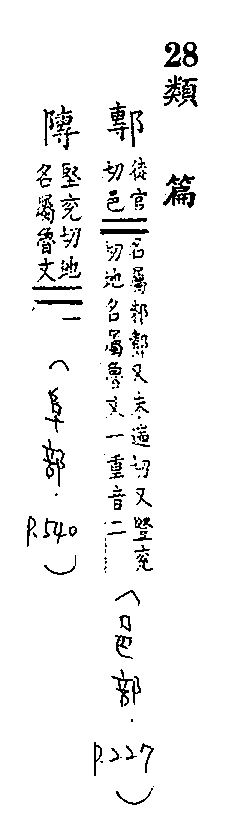 28類篇
鄟 徒官切邑名屬邾又朱遄切又豎兗切地名屬魯文一重音二 (邑部．P.227)
䧠 豎兗切地名屬魯文一 (阜部．P.540)